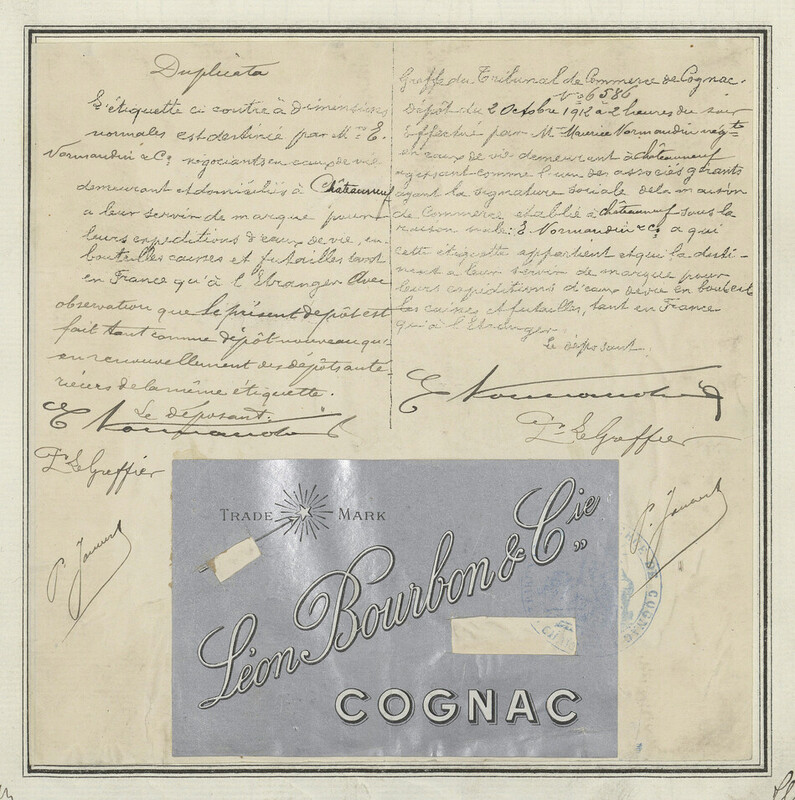 Duplicata
L'étiquette ci contre à dimensions
normales est destinée par Mrs E.
Normandin & Co négociants en eaux de vie
demeurant et domiciliés à Châteauneuf
a leur servir de marque pour
leurs expéditions d'eaux de vie, en
bouteilles caisses et futailles tant
en France qu'à l'Etranger Avec
observation que le présent dépôt est
fait tant comme dépôt nouveau que
en renouvellement des dépôts anté
rieurs de la même étiquette.
Le déposant.
E Normandin
P. Le Greffier
Greffe du Tribunal de Commerce de Cognac.
No 6586
Dépôt du 2 Octobre 1912 à 2 heures du soir
Effectué par Mr Maurice Normandin négt
en eaux de vie demeurant à Châteauneuf
agissant comme l'un des associés gérants
ayant la signature sociale de la maison
de Commerce établie à Châteauneuf sous la
raison sociale: E. Normandin & Co a qui
cette étiquette appartient et qui la desti-
nent a leur servir de marque pour
leurs expéditions d'eaux de vie en bouteil
les caisses et futailles, tant en France
qu'à l'Etranger.
Le déposant.
E Normandin
P. Le Greffier
TRADE MARK
Léon Bourbon & Cie „
COGNAC
DE COGNAC